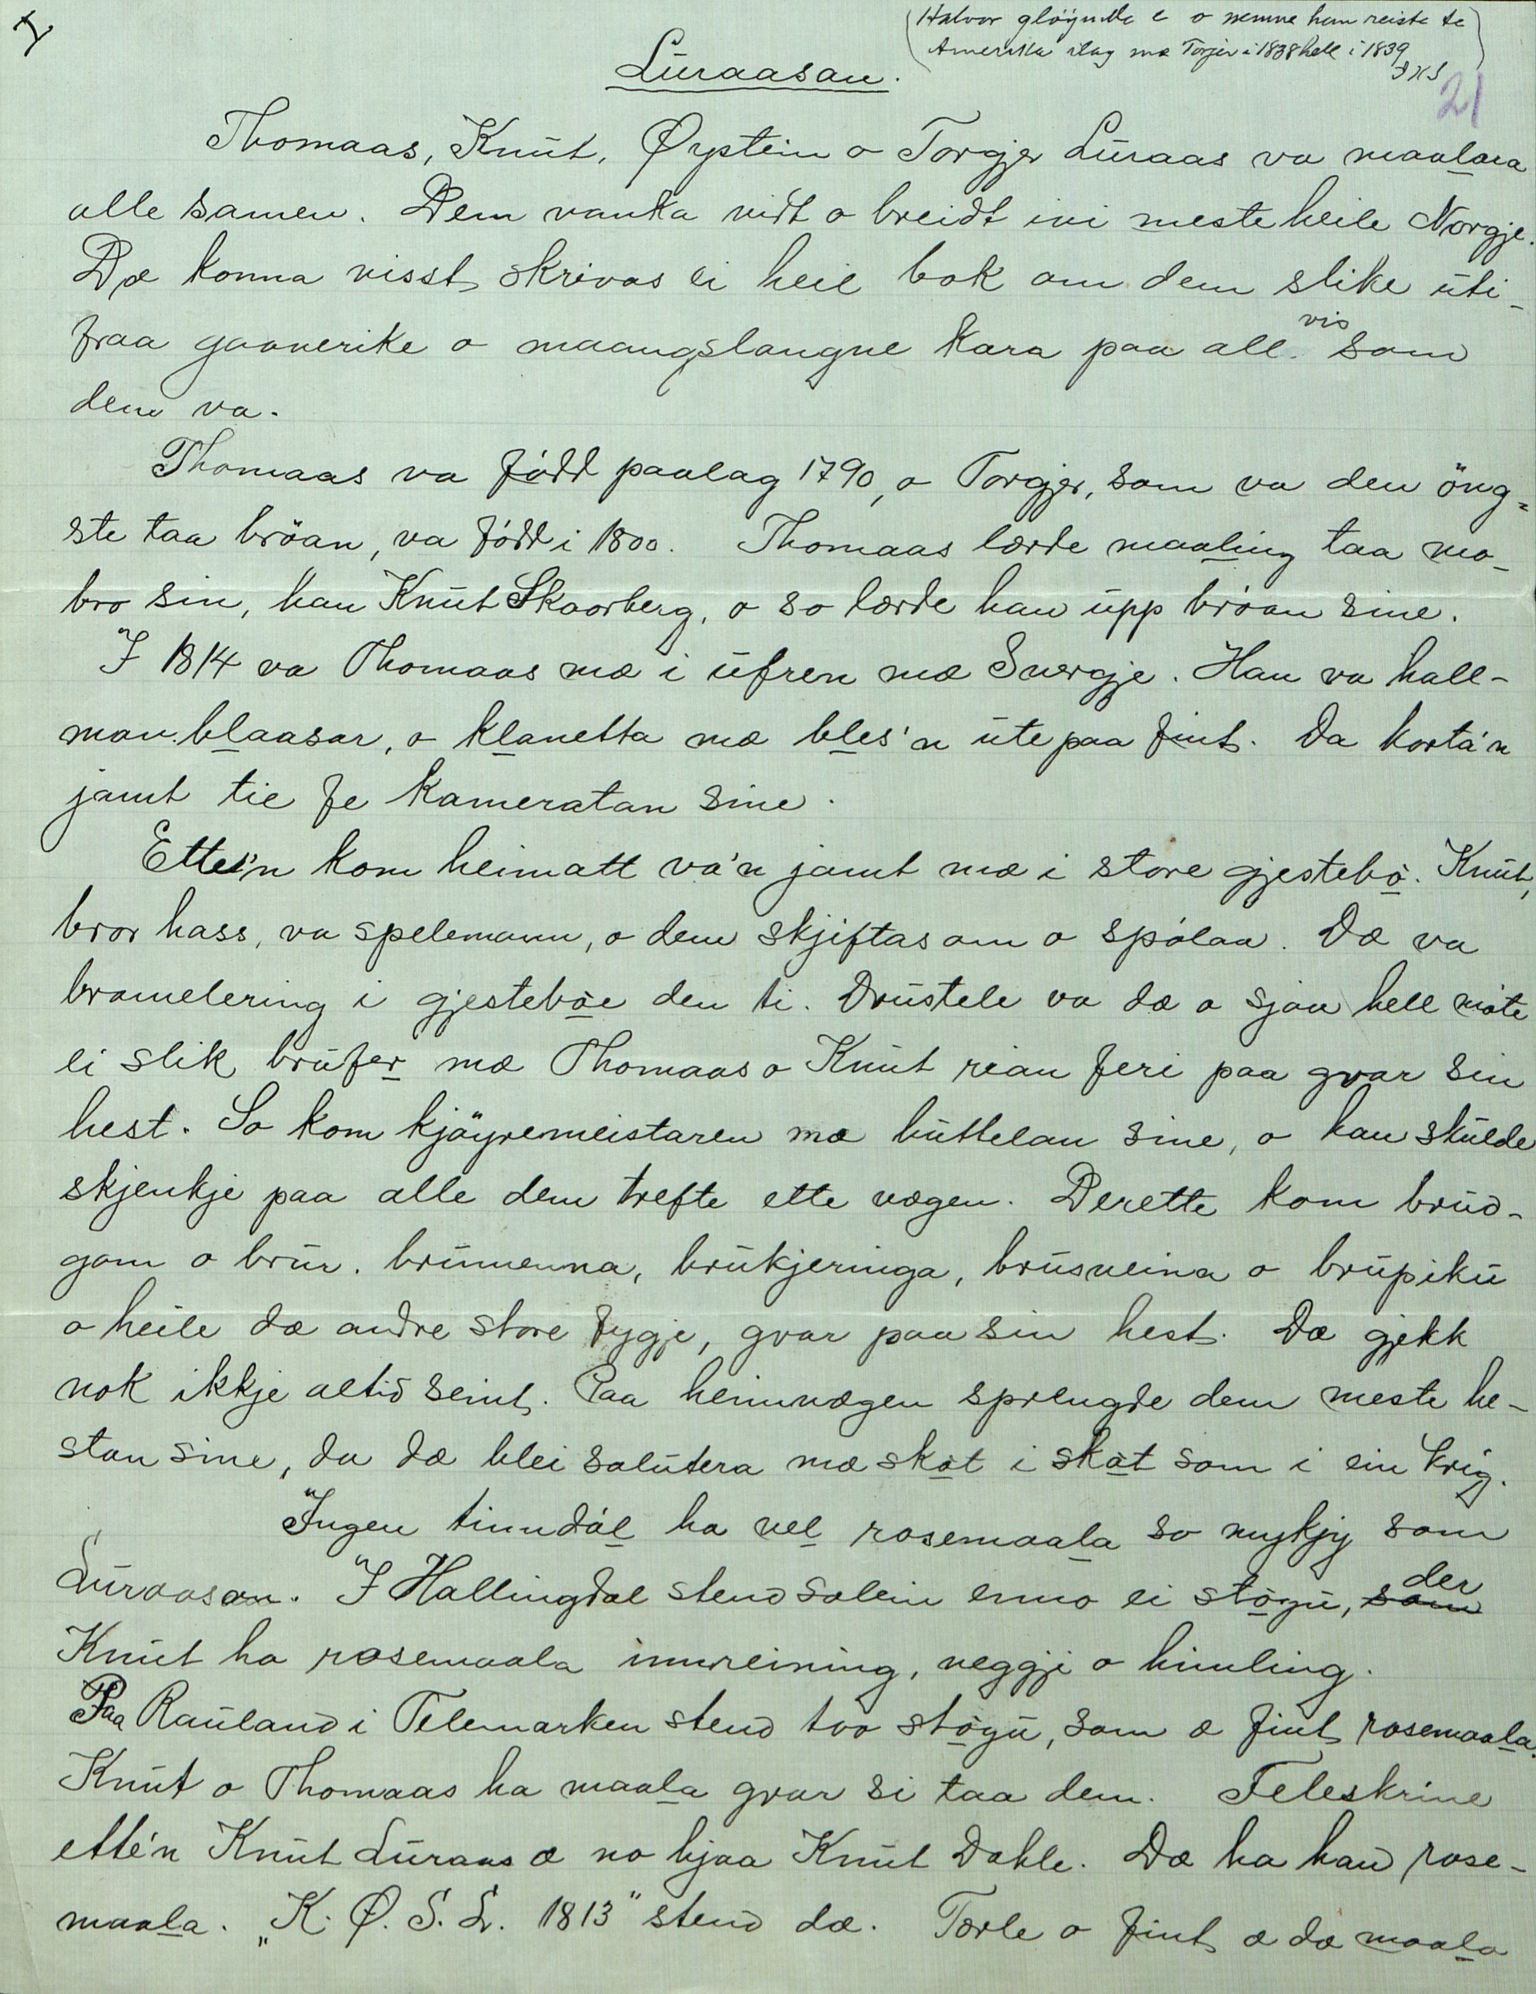 (Halvor gløymde e o nemne han reiste te
Amerika ilag mæ Torgjer i 1838 hell i 1839
21
Luraasan.
Thomaas, Knut, Øystein o Torgjer Luraas va maalara
alle samen. Dem vanka vidt o breidt ivi meste heile Norgje.
Dæ konna visst skrivas ei heil bok om dem slike uti-
fraa gaanerike o maangslangne kara paa all vis som
dem va.
Thomaas va född paalag 1790, o Torgjer, som va den öng-
ste taa bröan, va född i 1800. Thomaas lærde maaling taa mo-
bro sin, han Knut Skaarberg, o so lærde han upp bröan sine.
I 1814 va Thomaas mæ i ufren mæ Svergje. Han va hall-
man blaasar, o klanetta mæ bles'n ute paa fint. Da korta'n
jamt tie fe kameratan sine.
Ette'n kom heimatt va'n jamt mæ i store gjestebö. Knut,
bror hass, va spelemann, o dem skjiftas om o spölaa. Dæ va
bramelering i gjesteböe den ti. Drustele va dæ o sjaa hell möte
ei slik brufer mæ Thomaas o Knut rian feri paa gvar sin
hest. So kom kjöyremeistaren mæ buttelan sine, o han skulde
skjenkje paa alle dem trefte ette vægen. Derette kom brud-
gom o brur, brumenna, brukjeringa, brusveina o brupiku
o heile dæ andre store fygje, gvar paa sin hest. Dæ gjekk
nok ikkje altid seint. Paa heimvægen sprengde dem meste he-
stan sine, da dæ blei salutera mæ skot i skot som i ein krig.
Ingen tinndöl ha vel rosemaala so mykjy som
Luraasan. I Hallingdal stend solein enno ei stogu, som der
Knut ha rosemaala innreining, veggje o himling.
Paa Rauland i Telemarken stend tvo stogu, som æ fint rosemaala.
Knut o Thomaas ha maala gvar si taa dem. Feleskrine
ette'n Knut Luraas æ no hjaa Knut Dahle. Dæ ha han rose-
maala. „K. Ø. S. L. 1813" stend dæ. Tærle o fint æ dæ maala